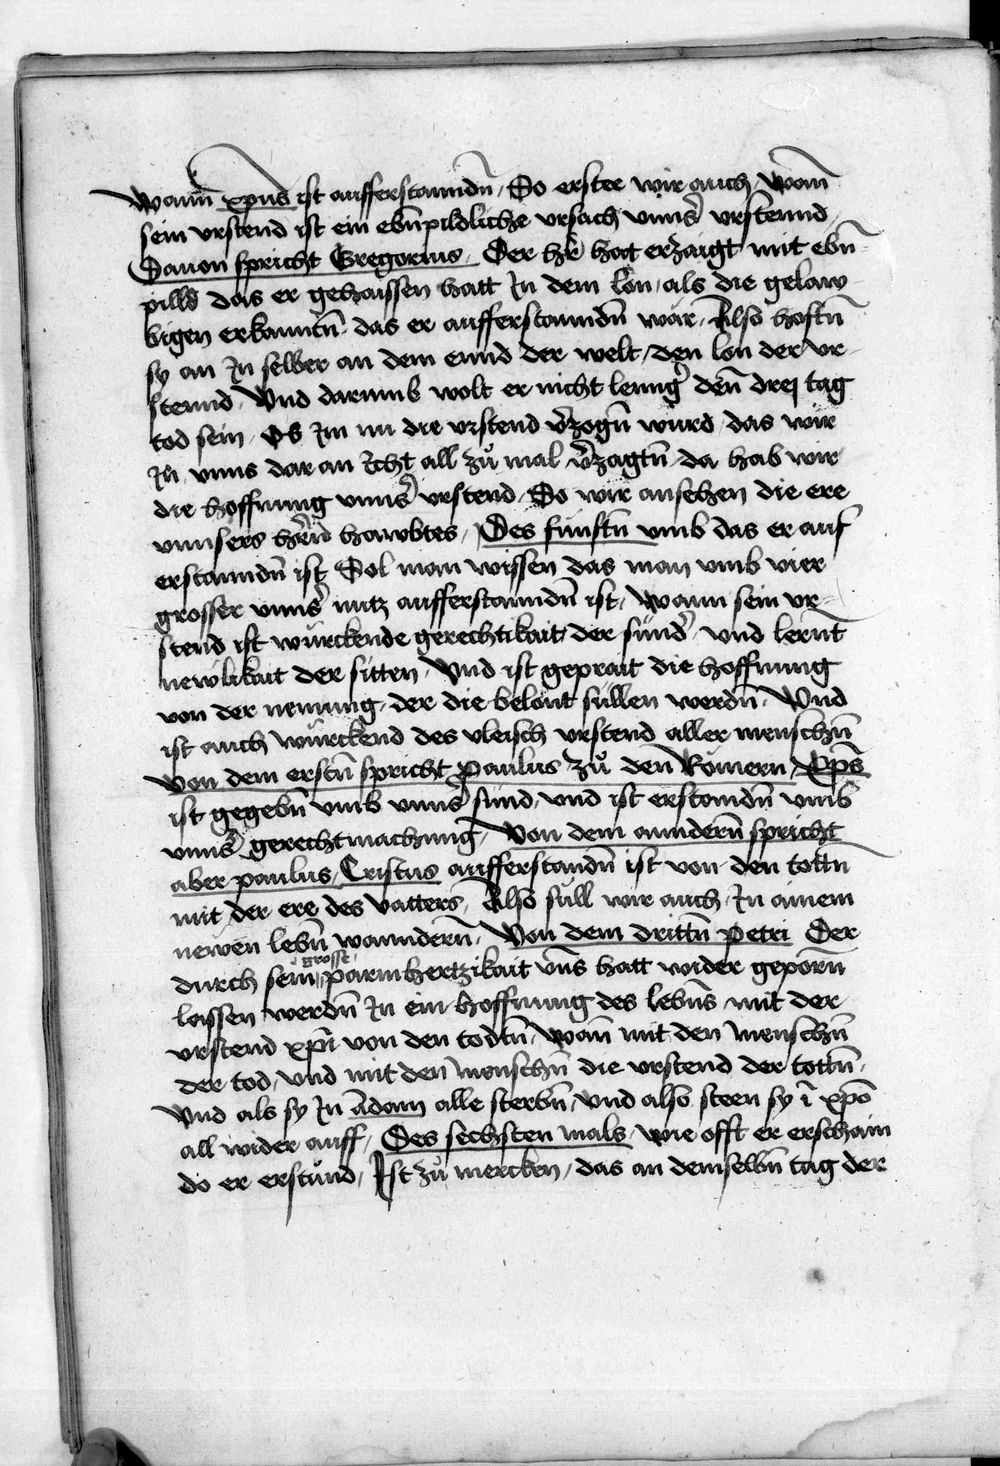 Wann̄ xp̄us ist aufferstanndn̄ / So erstee wir auch / Wan̄
sein vrstend ist ein ebn̄pildliche vrsach vnns̓ vrstennd /
Dauon spricht Gregorius / Der hr̄ hat erzaigt mit ebn̄-
pilld das er gehaissen hatt Jn dem lon / als die gelaw-
bigen erkanntn̄ das er aufferstanndn̄ war / Also hoftn̄
sy an Jn selber an dem ennd der welt / den lon der vr-
stennd / Vnd darumb wolt er nicht lenng̓ den̄ drej tag
tod sein / Ob Jm nu die vrstend v̓zogn̄ wurd / das wir
Jn vnns dar an Jcht all zů mal v̓zagtn̄ da hab wir
die hoffnung vnns̓ vrstend / So wir ansehen die ere
vnnsers hr̄n̄ hawbtes / Des funftn̄ vmb das er auf
erstanndn̄ ist Sol man wissen das man vmb vier
grosser vnns̓ nutz aufferstanndn̄ ist / Wann sein vr-
stend ist würckende gerechtikait der sünd̓ / vnd lernt
newlikait der sitten / Vnd ist geprait die hoffnung
von der nemung / der die belont sullen werdn̄ / Vnd
ist auch würckend des vleisch vrstend aller menschn̄
Von dem erstn̄ spricht Paulus zů den Römern / Xp̄s
ist gegebn̄ vmb vnns̓ sünd / vnd ist erstandn̄ vmb
vnns̓ gerechtmachung / Von dem anndern̄ spricht
aber paulus / Cristus aufferstandn̄ ist von den tottn̄
mit der ere des vatters / Also süll wir auch Jn ainem
newen lebn̄ wanndern̄ / Von dem drittn̄ Petri Der
durch sein grosse parmhertzikait vn̄s hatt wider geporn̄
lassen werdn̄ Jn ein hoffnung des lebn̄s mit der
vrstend xp̄i von den todtn̄ / Wan̄ mit den menschn̄
der tod / vnd mit den menschn̄ die vrstend der tottn̄ /
Vnd als sy Jn Adam alle sterbn̄ / vnd also steen sy ī xp̄o
all wider auff / Des sechsten mals / wie offt er erschain
do er erstůnd / Jst zů mercken / das an demselbn̄ tag der